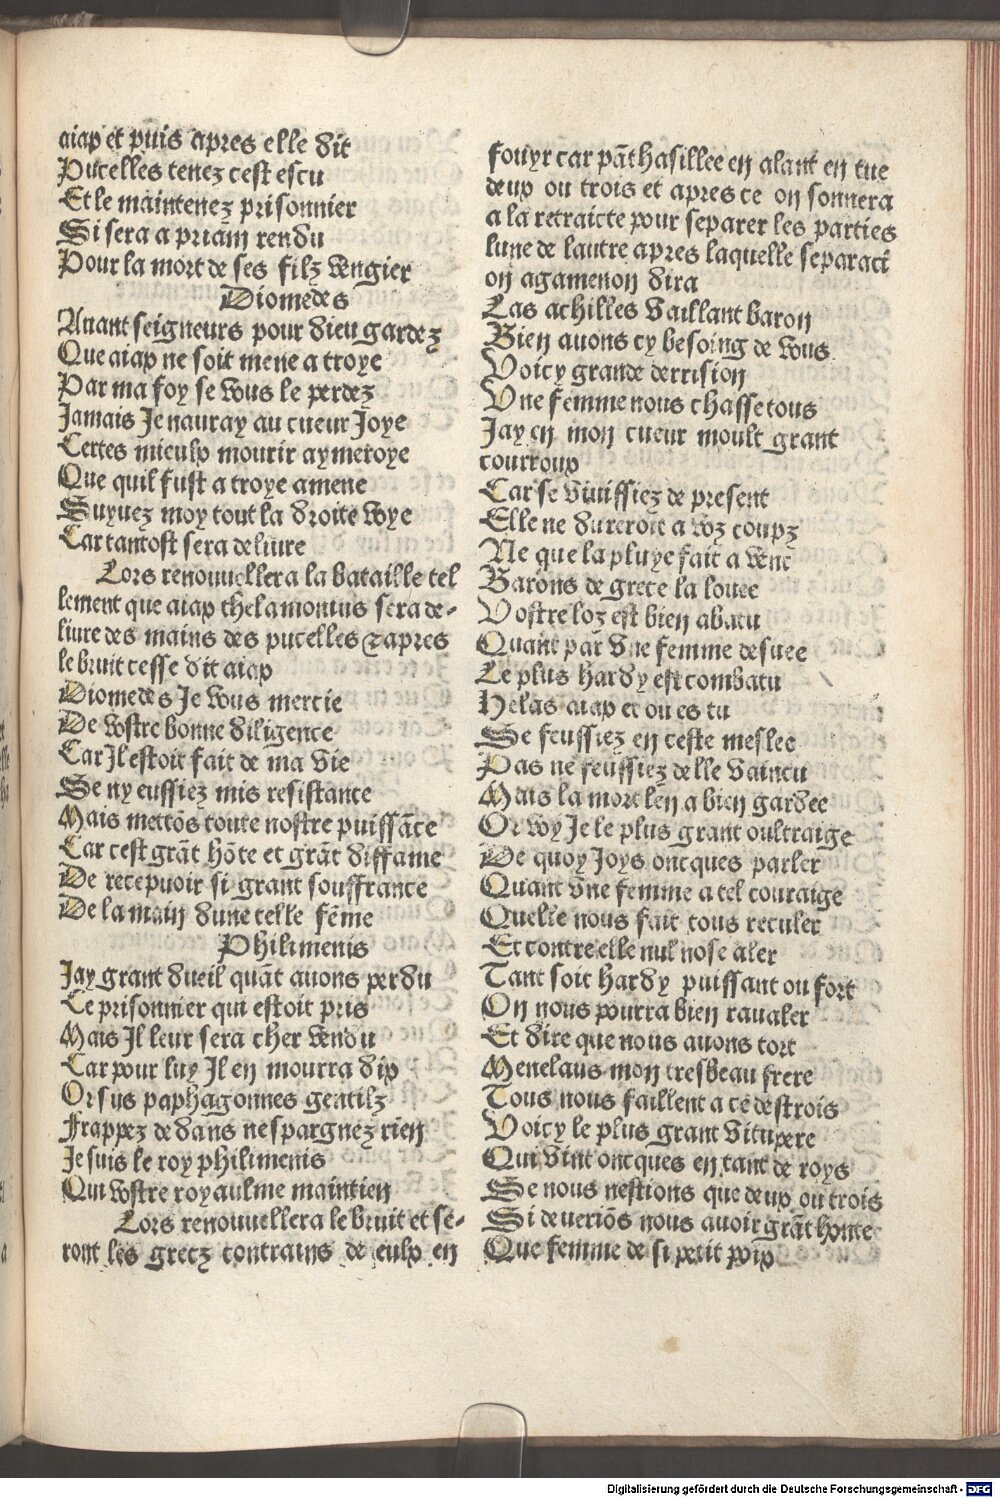 aiax et puis apres elle dit
Pucelles tenez cest escu
Et le maintenez prisonnier
Si sera a priam rendu
Pour la mort de ses filz vengier
Diomedes
Auant seigneurs pour dieu gardez
Que aiax ne soit mene a troye
Par ma foy se vous le perdez
Jamais Je nauray au cueur Joye
Certes mieulx mourir aymeroye
Que quil fust a troye amene
Suyuez moy tout la droite voye
Car tantost sera deliure
Lors renouuellera la bataille tel
lement que aiax thelamonius sera de-
liure des mains des pucelles ⁊ apres
le bruit cesse dit aiax
Diomedes Je vous mercie
De vostre bonne diligence
Car Il estoit fait de ma vie
Se ny eussiez mis resistance
Mais mettōs toute nostre puissāce
Car cest grāt hōte et grāt diffame
De recepuoir si grant souffrance
De la main dune telle fēme
Philimenis
Jay grant dueil quāt auons perdu
Le prisonnier qui estoit pris
Mais Il leur sera cher vendu
Car pour luy Il en mourra dix
Or sus paphagonnes gentilz
Frappez dedans nespargnez rien
Je suis le roy philimenis
Qui vostre royaulme maintien
Lors renouuellera le bruit et se-
ront les grecz contrains de eulx en
fouyr car pāthasillee en alant en tue
deux ou trois et apres ce on sonnera
a la retraicte pour separer les parties
lune de lautre apres laquelle separaci
on agamenon dira
Las achilles vaillant baron
Bien auons cy besoing de vous
Voicy grande derrision
Vne femme nous chasse tous
Jay en mon cueur moult grant
courroux
Car se vinissiez de present
Elle ne dureroit a voz coupz
Ne que la pluye fait a vent
Barons de grece la louee
Vostre loz est bien abatu
Quant par vne femme desuee
Le plus hardy est combatu
Helas aiax et ou es tu
Se feussiez en ceste meslee
Pas ne feussiez delle vaincu
Mais la mort len a bien gardee
Or voy Je le plus grant oultraige
De quoy Joys oncques parler
Quant vne femme a tel couraige
Quelle nous fait tous reculer
Et contre elle nul nose aler
Tant soit hardy puissant ou fort
On nous pourra bien raualer
Et dire que nous auons tort
Menelaus mon tresbeau frere
Tous nous faillent a ce destrois
Voicy le plus grant vitupere
Qui vint oncques en tant de roys
Se nous nestions que deux ou trois
Si deueriōs nous auoir grāt honte
Que femme de si petit poix
Digitalisierung gefördert durch die Deutsche Forschungsgemeinschaft - DFG